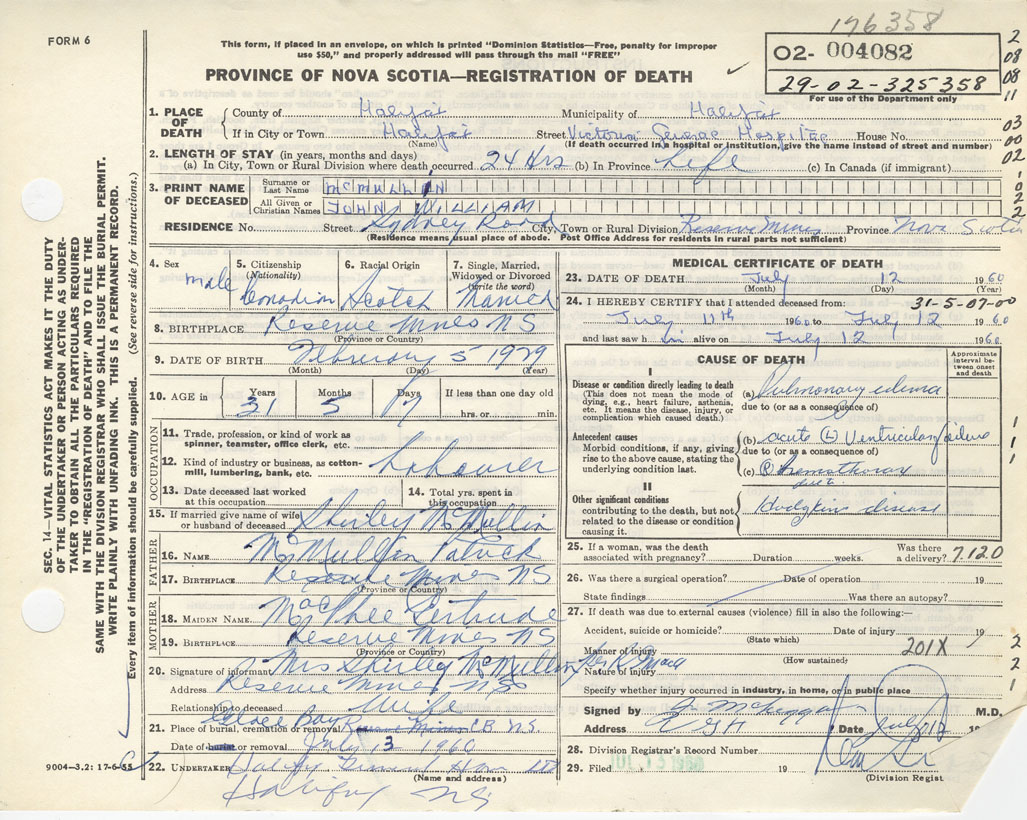 176358
FORM 6
This form, if placed in an envelope, on which is printed "Dominion Statistics—Free, penalty for improper
use $50," and properly addressed will pass through the mail "FREE"
PROVINCE OF NOVA SCOTIA—REGISTRATION OF DEATH
O2- 004082
29-02-325358
For use of the Department only
2
08
08
11
03
00
02
1. PLACE OF DEATH
County of Halifax Municipality of Halifax
If in City or Town Halifax Street Victoria General Hospital House No.
(Name) (If death occurred in a hospital or institution, give the name instead of street and number)
2. LENGTH OF STAY (in years, months and days)
(a) In City, Town or Rural Division where death occurred 24 Hrs (b) In Province Life (c) In Canada (if immigrant)
3. PRINT NAME OF DECEASED
Surname or Last Name McMULLIN
All Given or Christian Names JOHN WILLIAM
RESIDENCE No. Street Sydney Road City, Town or Rural Division Reserve Mines Province Nova Scotia
(Residence means usual place of abode. Post Office Address for residents in rural parts not sufficient)
4. Sex male
5. Citizenship (Nationality) Canadian
6. Racial Origin Scotch
7. Single, Married, Widowed or Divorced (write the word) Married
8. BIRTHPLACE Reserve Mines NS
(Province or Country)
9. DATE OF BIRTH February 5 1929
(Month) (Day) (Year)
10. AGE in Years 31 Months 5 Days 7 If less than one day old hrs. or min.
OCCUPATION
11. Trade, profession, or kind of work as spinner, teamster, office clerk, etc.
12. Kind of industry or business, as cotton-mill, lumbering, bank, etc. Labourer
13. Date deceased last worked at this occupation
14. Total yrs. spent in this occupation
15. If married give name of wife or husband of deceased Shirley McMullin
FATHER
16. NAME McMullin Patrick
17. BIRTHPLACE Reserve Mines NS
(Province or Country)
MOTHER
18. MAIDEN NAME MacPhee Gertrude
19. BIRTHPLACE Reserve Mines NS
(Province or Country)
20. Signature of informant Mrs Shirley McMullin
Address Reserve Mines NS
Relationship to deceased Wife
21. Place of burial, cremation or removal Glace Bay C.B. N.S.
Date of burial or removal July 13 1960
22. UNDERTAKER
(Name and address)
Halifax NS
9004-3.2: 17-6-55
SEC. 14—VITAL STATISTICS ACT MAKES IT THE DUTY
OF THE UNDERTAKER OR PERSON ACTING AS UNDER-
TAKER TO OBTAIN ALL THE PARTICULARS REQUIRED
IN THE "REGISTRATION OF DEATH" AND TO FILE THE
SAME WITH THE DIVISION REGISTRAR WHO SHALL ISSUE THE BURIAL PERMIT.
WRITE PLAINLY WITH UNFADING INK. THIS IS A PERMANENT RECORD.
Every item of information should be carefully supplied. (See reverse side for instructions.)
MEDICAL CERTIFICATE OF DEATH
23. DATE OF DEATH July 12 1960
(Month) (Day) (Year)
24. I HEREBY CERTIFY that I attended deceased from: 31-5-07-00
July 11th 1960 to July 12 1960
and last saw him alive on July 12 1960
CAUSE OF DEATH
Approximate interval between onset and death
I
Disease or condition directly leading to death
(This does not mean the mode of dying, e.g., heart failure, asthenia, etc. It means the disease, injury, or complication which caused death.)
(a) Pulmonary edema
due to (or as a consequence of)
Antecedent causes
Morbid conditions, if any, giving rise to the above cause, stating the underlying condition last.
(b) acute (L) Ventricular failure
due to (or as a consequence of)
(c)
II
Other significant conditions
contributing to the death, but not related to the disease or condition causing it.
Hodgkins disease
25. If a woman, was the death associated with pregnancy? Duration weeks. Was there a delivery? 7,120
26. Was there a surgical operation? Date of operation 19
State findings Was there an autopsy?
27. If death was due to external causes (violence) fill in also the following:—
Accident, suicide or homicide? Date of injury 19
(State which)
Manner of injury 201X
(How sustained)
Nature of injury
Specify whether injury occurred in industry, in home, or in public place
Signed by M.D.
Address VGH Date July 19
28. Division Registrar's Record Number
29. Filed 19
(Division Regist